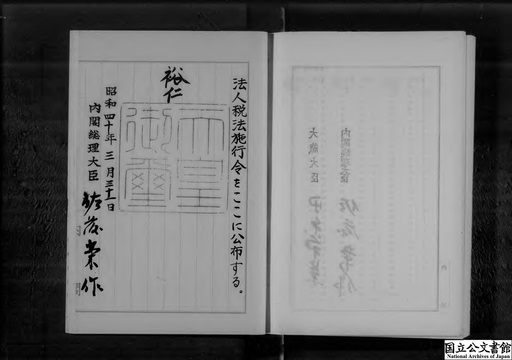 法人税法施行令をここに公布する。
裕仁
天皇御璽
昭和四十年三月三十一日
内閣総理大臣 佐藤栄作
国立公文書館
National Archives of Japan